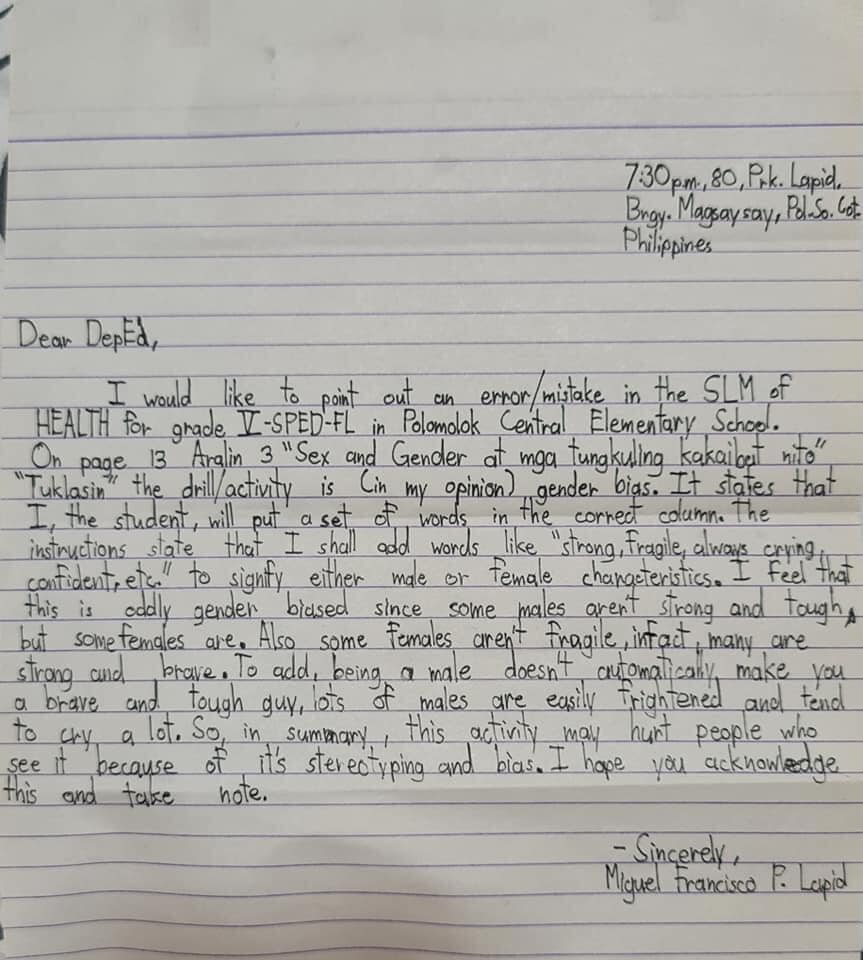 7:30p.m., 80, Prk. Lapid.
Brgy. Magsaysay, Pol. So. Cot.
Philippines
Dear DepEd,
I would like to point out an error/mistake in the SLM of
HEALTH for grade V-SPED-FL in Polomolok Central Elementary School.
On page 13 Aralin 3 "Sex and Gender at mga tungkuling kakaibat nito"
"Tuklasin" the drill/activity is (in my opinion) gender bias. It states that
I, the student, will put a set of words in the correct column. The
instructions state that I shall add words like "strong, fragile, always crying,
confident, etc." to signify either male or female characteristics. I feel that
this is oddly gender biased since some males aren't strong and tough,
but some females are. Also some females aren't fragile, infact, many are
strong and brave. To add, being a male doesn't automatically make you
a brave and tough guy, lots of males are easily frightened and tend
to cry a lot. So, in summary, this activity may hurt people who
see it because of it's stereotyping and bias. I hope you acknowledge
this and take note.
- Sincerely,
Miguel Francisco P. Lapid